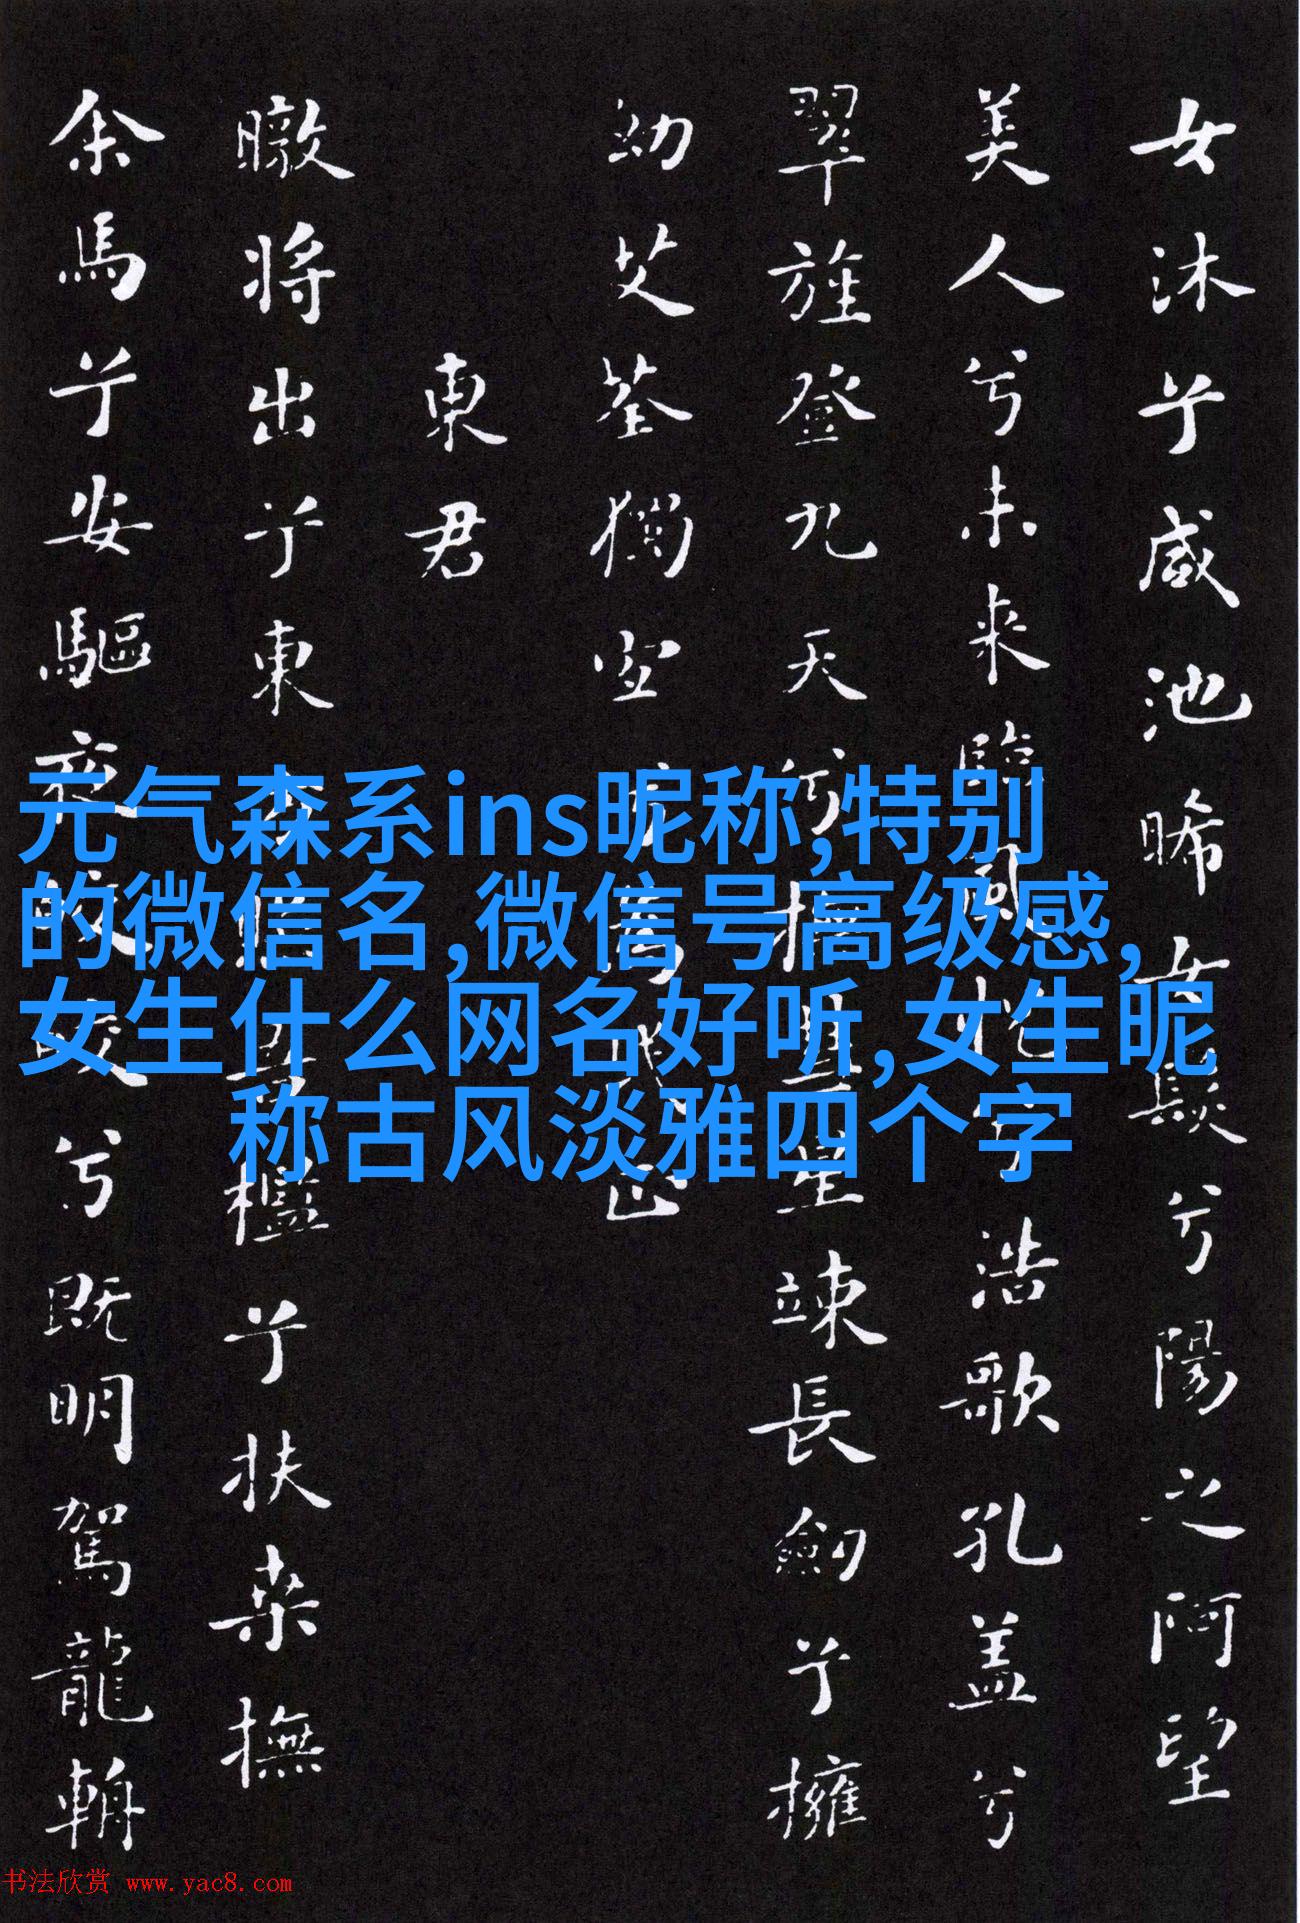 女沐兮咸池晞女髮兮陽之阿望
美人兮未来臨風怳兮浩歌孔盖兮
翠旌登九天兮撫彗星竦長劍兮擁
幼艾荃獨宜兮為民正
東君
暾將出兮東方照吾檻兮扶桑撫
余馬兮安驅夜皎皎兮既明駕龍輈
元气森系ins昵称,特别
的微信名,微信号高级感,
女生什么网名好听,女生昵
称古风淡雅四个字
书法欣赏 www.yac8.com